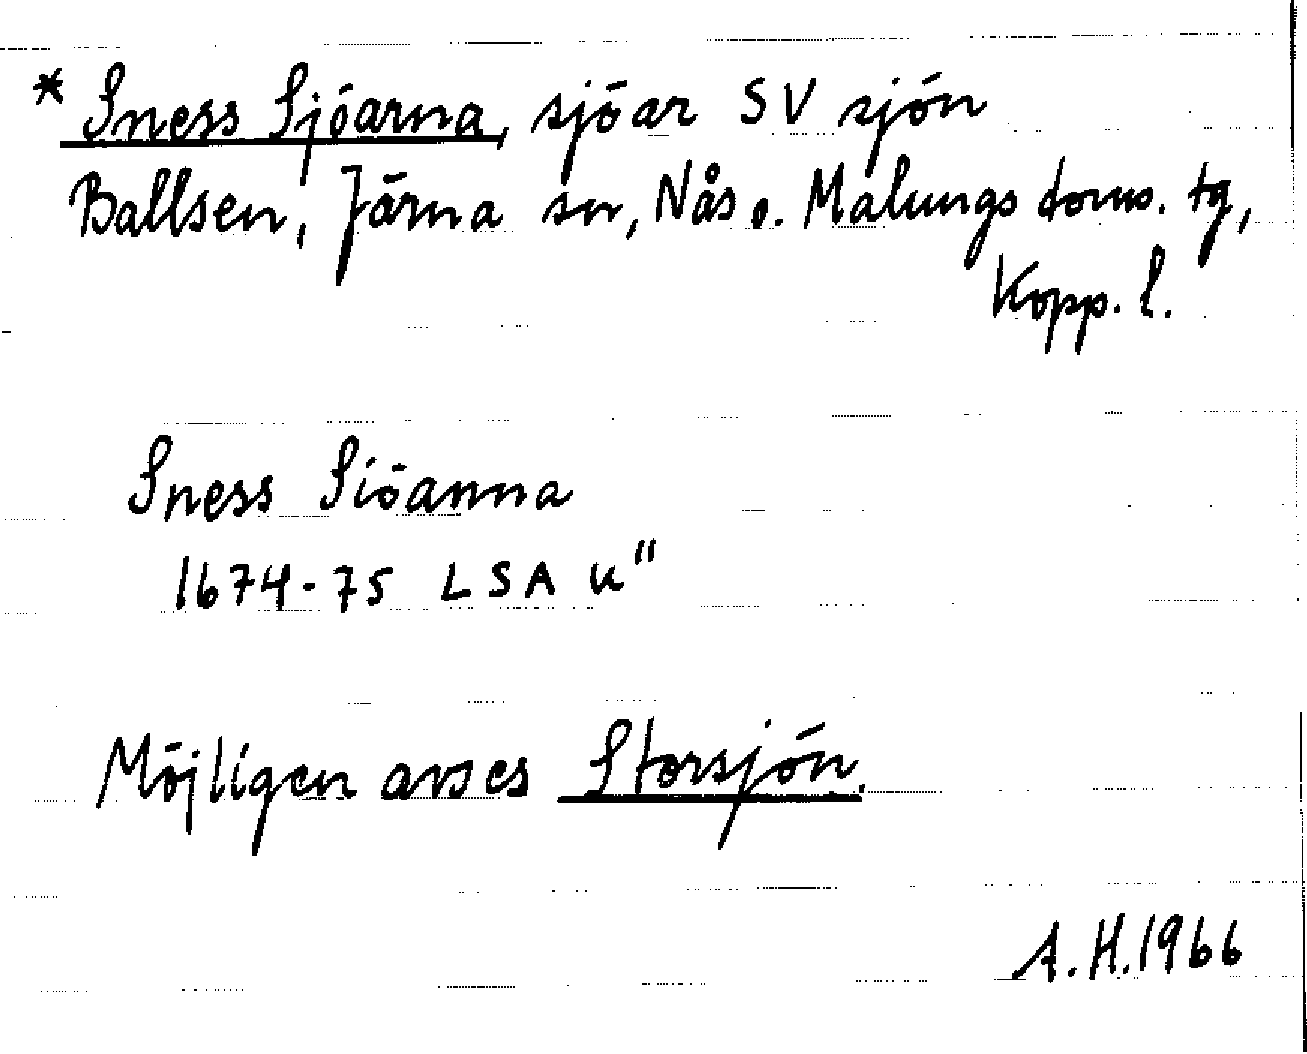 * Sness Sjöarna, sjöar SV sjön
Ballsen, Järna sn, Nås o. Malungs doms. tg,
Kopp. l.
Sness Siöanna
1674-75 LSA u"
Möjligen avses Storsjön.
A.H. 1966